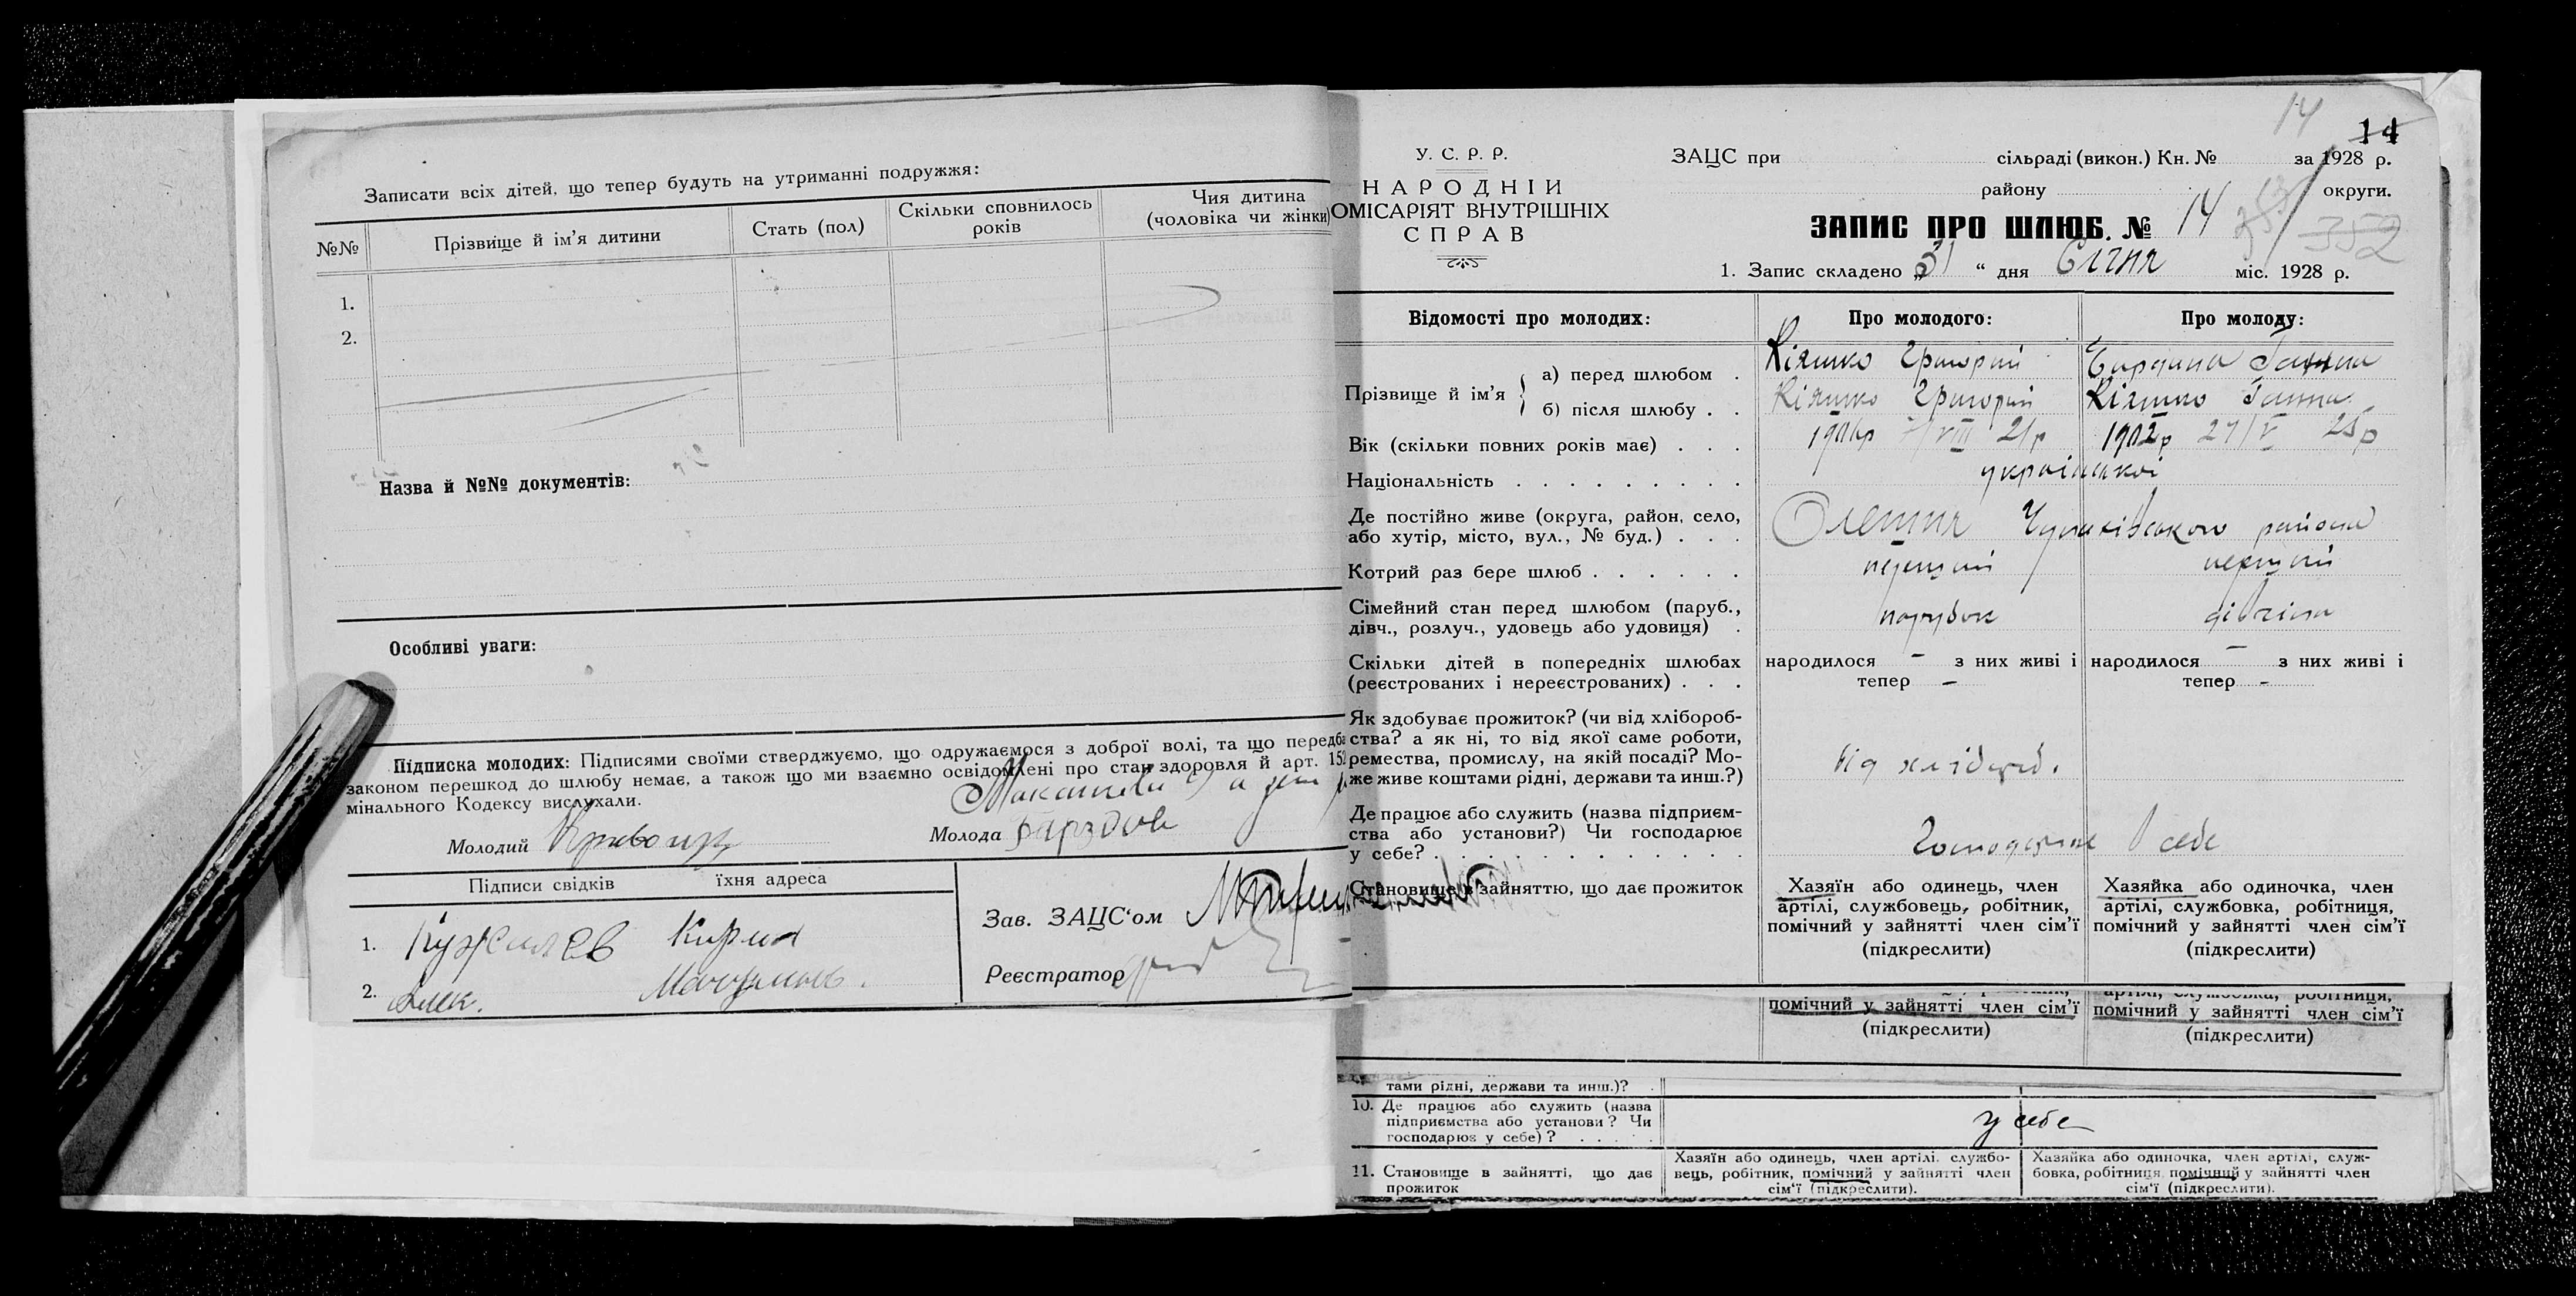 Записати всіх дітей, що тепер будуть на утриманні подружжя:
№№ Прізвище й ім'я дитини Стать (пол) Скільки сповнилось років Чия дитина (чоловіка чи жінки)
1.
2.
Назва й №№ документів:
Особливі уваги:
Підписка молодих: Підписями своїми стверджуємо, що одружаємося з доброї волі, та що передба
законом перешкод до шлюбу немає, а також що ми взаємно освідомлені про стан здоровля й арт. 152
мінального Кодексу вислухали.
Молодий
Молода
Підписи свідків їхня адреса
1. Кужилєв Кирил
2.
Зав. ЗАЦС'ом
Реєстратор
14
14
У. С. Р. Р.
НАРОДНІЙ
ОМІСАРІЯТ ВНУТРІШНІХ
СПРАВ
ЗАЦС при сільраді (викон.) Кн. № за 1928 р.
району округи.
ЗАПИС ПРО ШЛЮБ. № 14
352
1. Запис складено „31“ дня Січня міс. 1928 р.
Відомості про молодих: Про молодого: Про молоду:
Прізвище й ім'я
а) перед шлюбом . Кіяшко Григорий Ганна
б) після шлюбу . . Кіяшко Григорий Кіяшко Ганна
Вік (скільки повних років має) . . . VIII 21р 1902р V 25р
Національність . . . . . . . . . української
Де постійно живе (округа, район, село,
або хутір, місто, вул., № буд.) . . . Олешня району
Котрий раз бере шлюб . . . . . . перший перший
Сімейний стан перед шлюбом (паруб.,
дівч., розлуч., удовець або удовиця) . парубок дівчина
Скільки дітей в попередніх шлюбах
(реєстрованих і нереєстрованих) . . .
народилося – з них живі і
тепер –
народилося – з них живі і
тепер –
Як здобуває прожиток? (чи від хлібороб-
ства? а як ні, то від якої саме роботи,
ремества, промислу, на якій посаді? Мо-
же живе коштами рідні, держави та инш.?)
від хлібороб.
Де працює або служить (назва підприєм-
ства або установи?) Чи господарює
у себе? . . . . . . . . . . . .
в себе
Становище в зайняттю, що дає прожиток
Хазяїн або одинець, член
артілі, службовець, робітник,
помічний у зайнятті член сім'ї
(підкреслити)
Хазяйка або одиночка, член
артілі, службовка, робітниця,
помічний у зайнятті член сім'ї
(підкреслити)
помічний у зайнятті член сім'ї
(підкреслити)
артілі, службовка, робітниця,
помічний у зайнятті член сім'ї
(підкреслити)
тами рідні, держави та инш.)?
10. Де працює або служить (назва
підприємства або установи? Чи
господарює у себе)? . . . . .
у себе
11. Становище в зайнятті, що дає
прожиток
Хазяїн або одинець, член артілі, службо-
вець, робітник, помічний у зайнятті член
сім'ї (підкреслити).
Хазяйка або одиночка, член артілі, служ-
бовка, робітниця, помічний у зайнятті член
сім'ї (підкреслити).